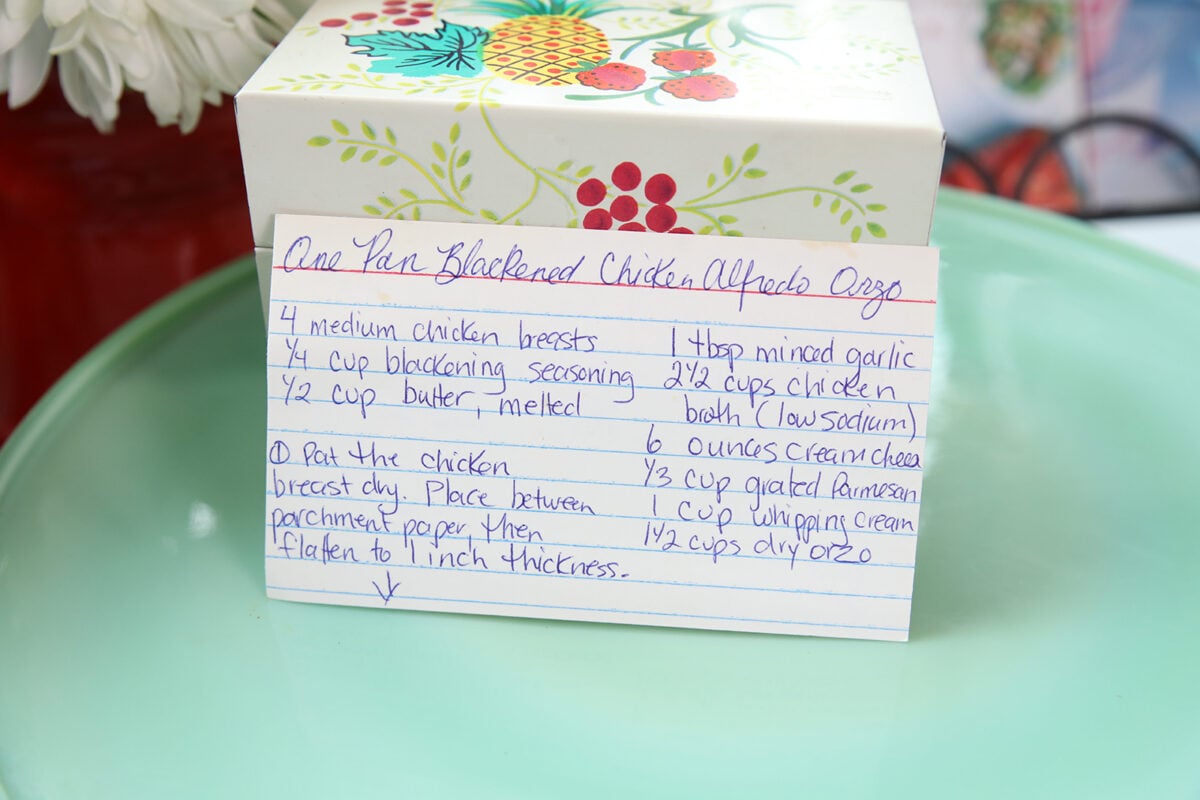 One Pan Blackened Chicken Alfredo Orzo
4 medium chicken breasts
1/4 cup blackening seasoning
1/2 cup butter, melted
1 tbsp minced garlic
2 1/2 cups chicken
broth (low sodium)
6 ounces cream cheese
1/3 cup grated Parmesan
1 cup whipping cream
1 1/2 cups dry orzo
① Pat the chicken
breast dry. Place between
parchment paper, then
flatten to 1 inch thickness.